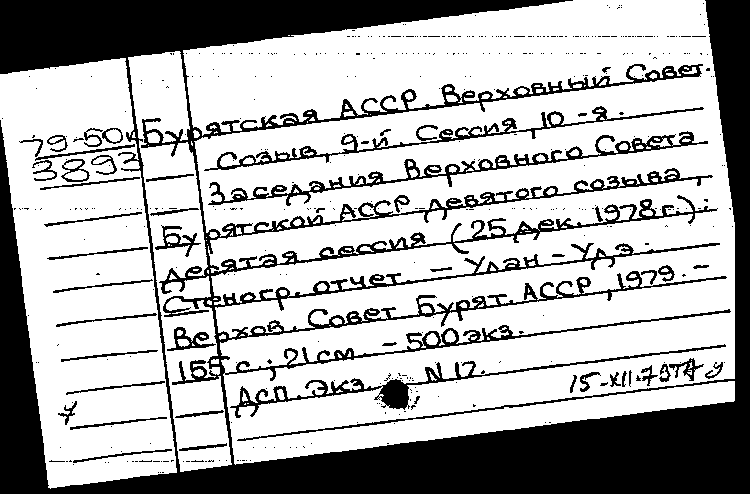 79-50к Бурятская АССР. Верховный Совет.
3893 Созыв, 9-й. Сессия, 10-я.
Заседания Верховного Совета
Бурятской АССР девятого созыва,
десятая сессия (25 дек. 1978 г.):
Стеногр. отчет. — Улан-Удэ:
Верхов. Совет Бурят. АССР, 1979. —
155 с.; 21 см. - 500 экз.
Дсп. Экз. N 17.
15-XII-79